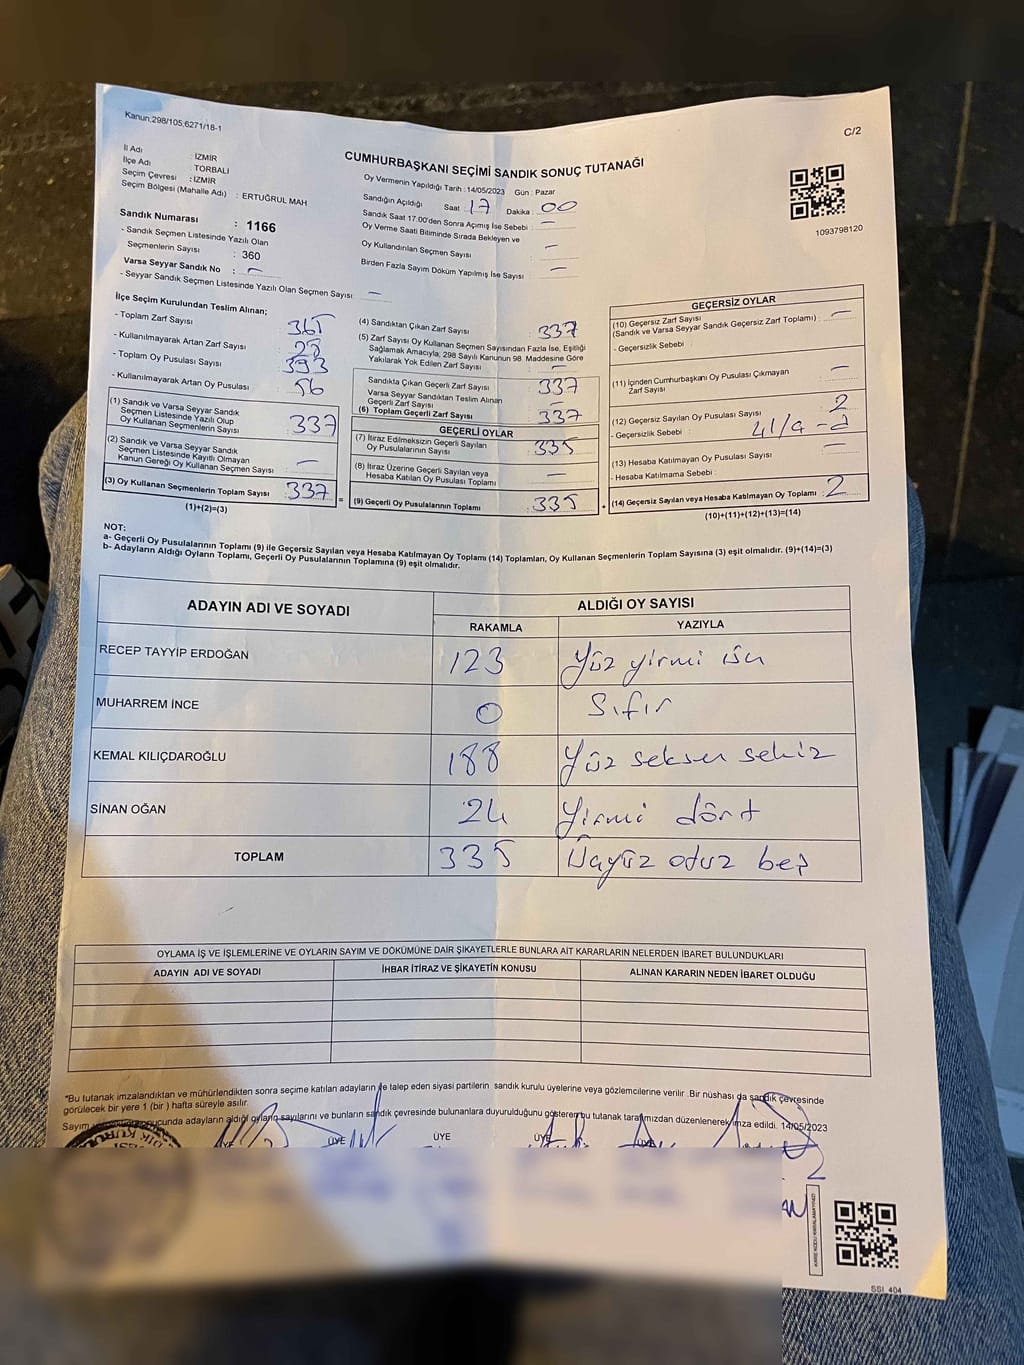 Kanun:298/105;6271/18-1
C/2
İl Adı : İZMİR
İlçe Adı : TORBALI
Seçim Çevresi : İZMİR
Seçim Bölgesi (Mahalle Adı) : ERTUĞRUL MAH
Sandık Numarası : 1166
- Sandık Seçmen Listesinde Yazılı Olan
Seçmenlerin Sayısı : 360
Varsa Seyyar Sandık No : -
- Seyyar Sandık Seçmen Listesinde Yazılı Olan Seçmen Sayısı -
CUMHURBAŞKANI SEÇİMİ SANDIK SONUÇ TUTANAĞI
Oy Vermenin Yapıldığı Tarih :14/05/2023 Gün : Pazar
Sandığın Açıldığı Saat : 17 Dakika : 00
Sandık Saat 17:00'den Sonra Açımış İse Sebebi : -
Oy Verme Saati Bitiminde Sırada Bekleyen ve
Oy Kullandırılan Seçmen Sayısı -
Birden Fazla Sayım Döküm Yapılmış İse Sayısı -
1093798120
İlçe Seçim Kurulundan Teslim Alınan;
- Toplam Zarf Sayısı 365
- Kullanılmayarak Artan Zarf Sayısı 28
- Toplam Oy Pusulası Sayısı 393
- Kullanılmayarak Artan Oy Pusulası 56
(1) Sandık ve Varsa Seyyar Sandık
Seçmen Listesinde Yazılı Olup
Oy Kullanan Seçmenlerin Sayısı 337
(2) Sandık ve Varsa Seyyar Sandık
Seçmen Listesinde Kayıtlı Olmayan
Kanun Gereği Oy Kullanan Seçmen Sayısı -
(3) Oy Kullanan Seçmenlerin Toplam Sayısı 337 =
(1)+(2)=(3)
(4) Sandıktan Çıkan Zarf Sayısı : 337
(5) Zarf Sayısı Oy Kullanan Seçmen Sayısından Fazla İse, Eşitliği
Sağlamak Amacıyla, 298 Sayılı Kanunun 98. Maddesine Göre
Yakılarak Yok Edilen Zarf Sayısı : -
Sandıkta Çıkan Geçerli Zarf Sayısı : 337
Varsa Seyyar Sandıktan Teslim Alınan
Geçerli Zarf Sayısı : -
(6) Toplam Geçerli Zarf Sayısı : 337
GEÇERLİ OYLAR
(7) İtiraz Edilmeksizin Geçerli Sayılan
Oy Pusulası Sayısı : 335
(8) İtiraz Üzerine Geçerli Sayılan veya
Hesaba Katılan Oy Pusulası Toplamı : -
(9) Geçerli Oy Pusulalarının Toplamı : 335 +
GEÇERSİZ OYLAR
(10) Geçersiz Zarf Sayısı
(Sandık ve Varsa Seyyar Sandık Geçersiz Zarf Toplamı) : -
- Geçersizlik Sebebi :
(11) İçinden Cumhurbaşkanı Oy Pusulası Çıkmayan
Zarf Sayısı : -
(12) Geçersiz Sayılan Oy Pusulası Sayısı : 2
- Geçersizlik Sebebi : 41/a - 2
(13) Hesaba Katılmayan Oy Pusulası Sayısı : -
- Hesaba Katılmama Sebebi :
(14) Geçersiz Sayılan veya Hesaba Katılmayan Oy Toplamı : 2
(10)+(11)+(12)+(13)=(14)
NOT:
a- Geçerli Oy Pusulalarının Toplamı (9) ile Geçersiz Sayılan veya Hesaba Katılmayan Oy Toplamı (14) Toplamları, Oy Kullanan Seçmenlerin Toplam Sayısına (3) eşit olmalıdır. (9)+(14)=(3)
b- Adayların Aldığı Oyların Toplamı, Geçerli Oy Pusulalarının Toplamına (9) eşit olmalıdır.
ADAYIN ADI VE SOYADI ALDIĞI OY SAYISI
RAKAMLA YAZIYLA
RECEP TAYYİP ERDOĞAN 123 Yüz yirmi üç
MUHARREM İNCE 0 Sıfır
KEMAL KILIÇDAROĞLU 188 Yüz seksen sekiz
SİNAN OĞAN 24 Yirmi dört
TOPLAM 335 Üçyüz otuz beş
OYLAMA İŞ VE İŞLEMLERİNE VE OYLARIN SAYIM VE DÖKÜMÜNE DAİR ŞİKAYETLERLE BUNLARA AİT KARARLARIN NELERDEN İBARET BULUNDUKLARI
ADAYIN ADI VE SOYADI İHBAR İTİRAZ VE ŞİKAYETİN KONUSU ALINAN KARARIN NEDEN İBARET OLDUĞU
*Bu tutanak imzalandıktan ve mühürlendikten sonra seçime katılan adayların ile talep eden siyasi partilerin sandık kurulu üyelerine veya gözlemcilerine verilir .Bir nüshası da sandık çevresinde
görülecek bir yere 1 (bir ) hafta süreyle asılır.
Sayım sonucunda adayların aldığı oyların sayılarını ve bunların sandık çevresinde bulunanlara duyurulduğunu gösteren bu tutanak tarafımızdan düzenlenerek imza edildi. 14/05/2023
ÜYE ÜYE ÜYE ÜYE
SSI_404